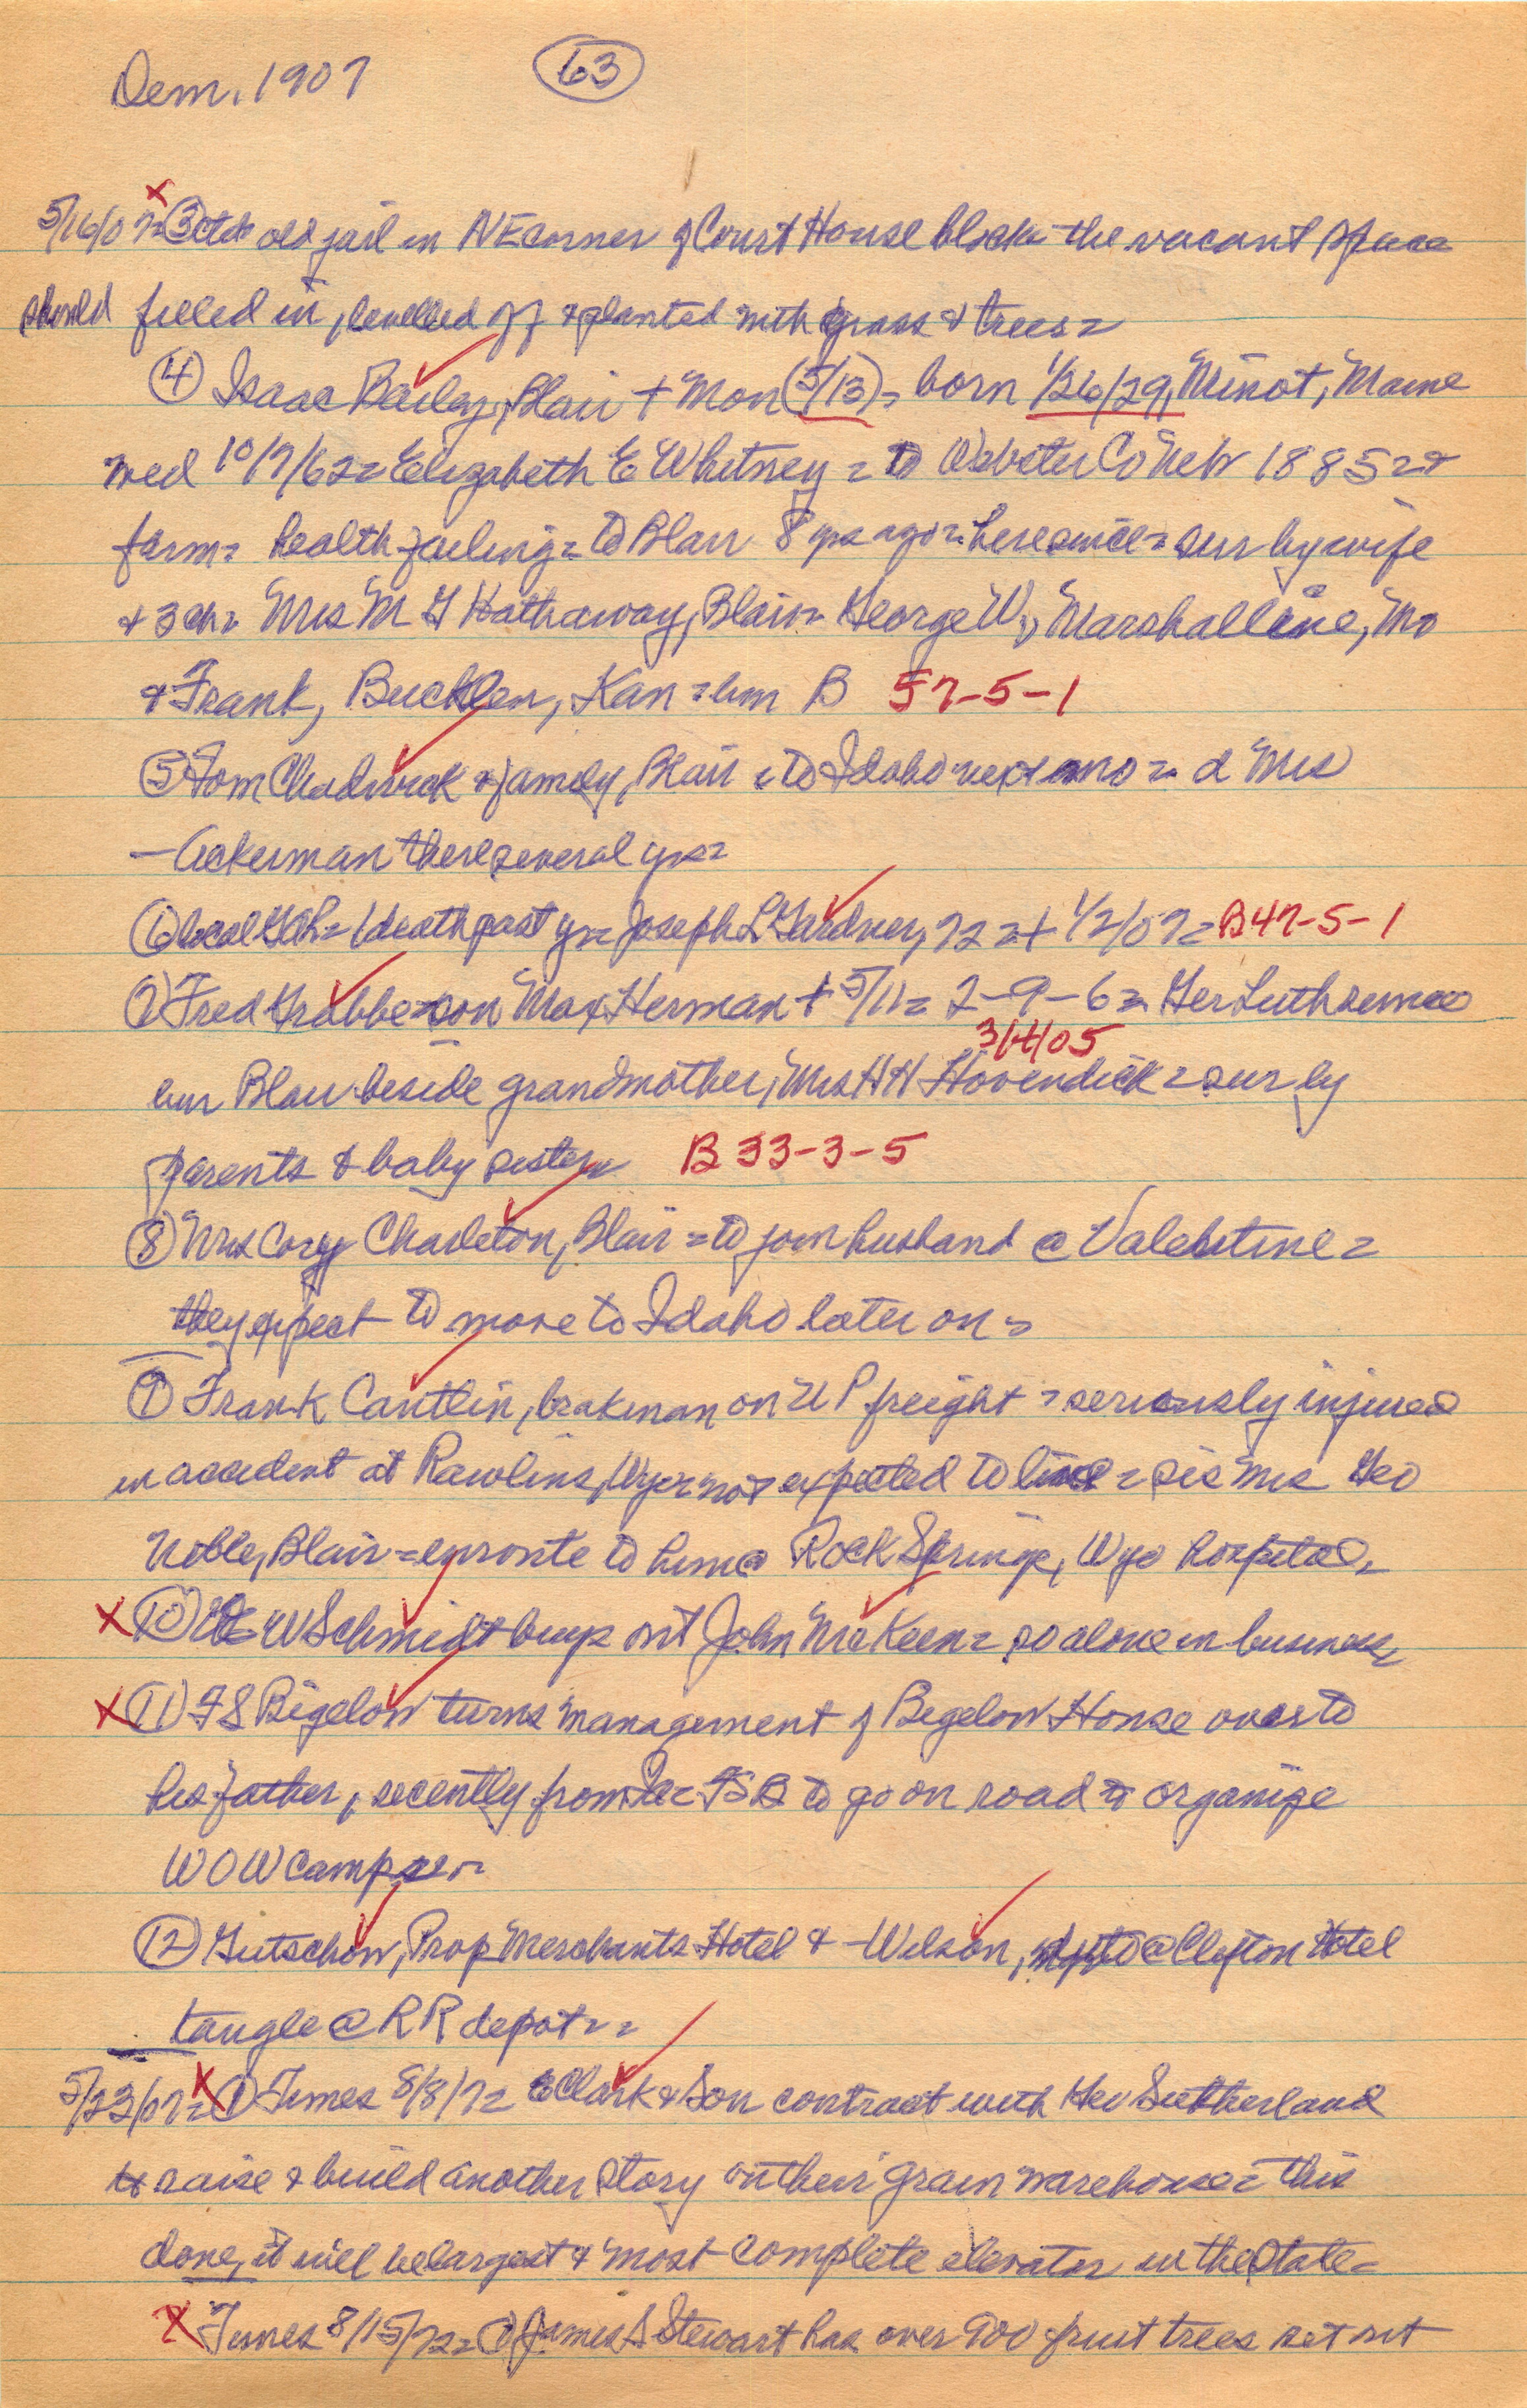 Dem. 1907 63
5/16/07 = ③ old jail in NE corner of Court House block the vacant space
should filled in, levelled off & planted with grass & trees =
④ Isaac Bailey, Blair + Mon (5/13) = born 1/26/29, Minot, Maine
med 10/7/62 = Elizabeth E Whitney = to Webster Co Neb 1885 = &
farm = health failing = to Blair 8 yrs ago = here since = sur by wife
& 3 ch = Mrs M G Hathaway, Blair = George W, Marshalline, Mo
& Frank, Bucklen, Kan = bur B 57-5-1
⑤ Tom Chadwick & family, Blair = to Idaho next mo = d Mrs
— Ackerman there several yrs =
⑥ local GAR = 1 death past yr = Joseph L Gardner, 72 = + 1/2/07 = B 47-5-1
⑦ Fred Grabbe = son Max Herman + 5/11 = 2-9-6 = Ger Luth
3/4/05
bur Blair beside grandmother, Mrs H H Hovendick = sur by
parents & baby sister B 33-3-5
⑧ Mrs Cory Charleton, Blair = to join husband @ Valentine =
they expect to move to Idaho later on =
⑨ Frank Cantlin, brakman on U P freight = seriously injured
in accident at Rawlins, Wyo = not expected to live = sis Mrs Geo
Noble, Blair = enroute to him @ Rock Springs, Wyo hospital =
X ⑩ W Schmidt buys out John McKeen = so alone in business
X ⑪ F S Bigelow turns management of Bigelow House over to
his father, recently from = FSB to go on road to organize
WOW camps =
⑫ Gutschow, Prop Merchants Hotel & — Wilson, @ Clifton Hotel
tangle @ R R depot = =
5/23/07 = X ① Times 8/8/72 E Clark & Son contract with Hev Sutherland
to raise & build another story on their grain warehouse = this
done, it will be largest & most complete elevator in the State =
X Times 8/15/72 = ① James S Stewart has over 900 fruit trees set out